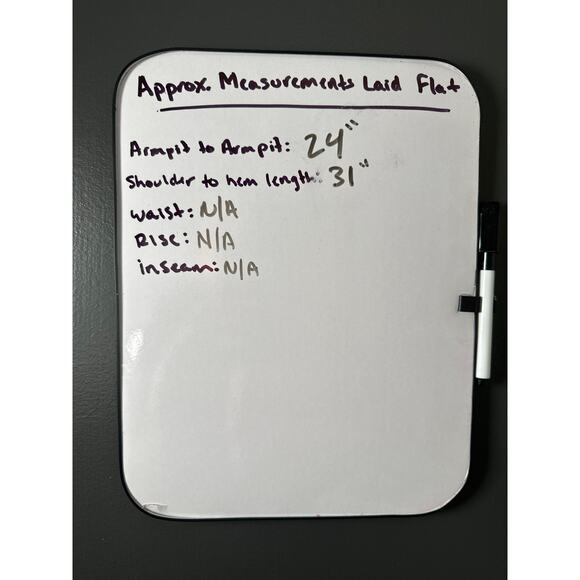 Approx. Measurements Laid Flat
Armpit to Armpit: 24"
Shoulder to hem length: 31"
waist: N/A
Rise: N/A
inseam: N/A